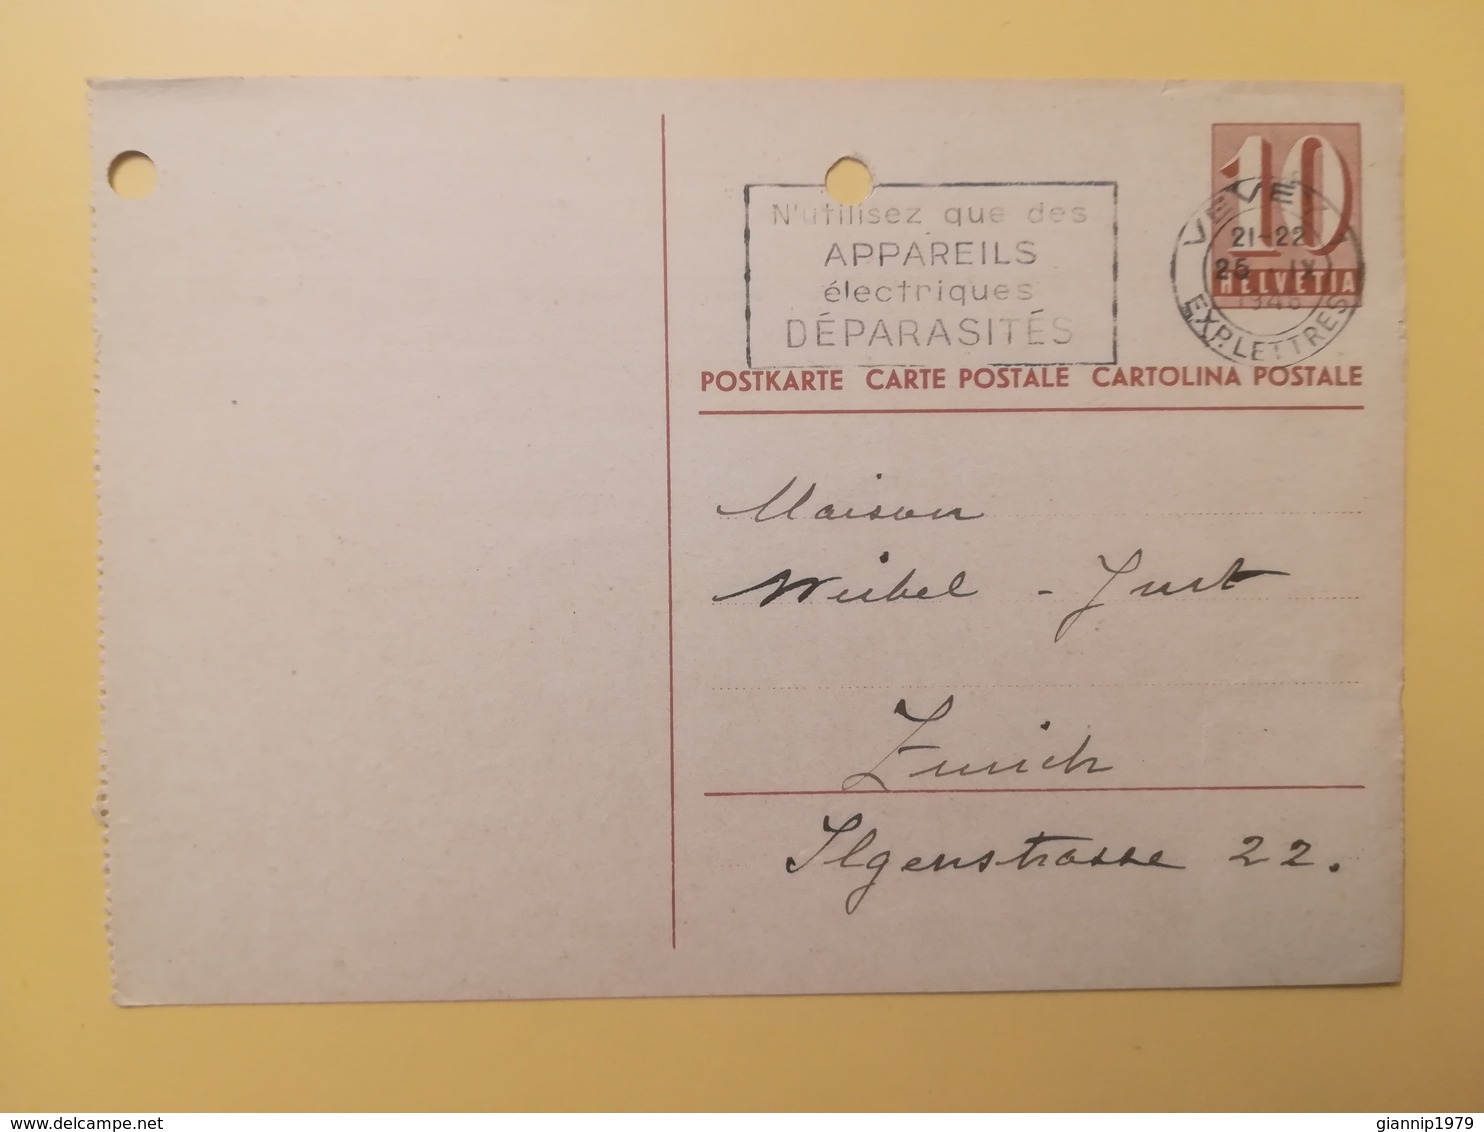 10
HELVETIA
VEVEY
21-22
25 IX
1946
EXP. LETTRES
N'utilisez que des
APPAREILS
électriques
DÉPARASITÉS
POSTKARTE CARTE POSTALE CARTOLINA POSTALE
Maison
Weibel - Just
Zurich
Ilgenstrasse 22.
delcampe.net
giannip1979